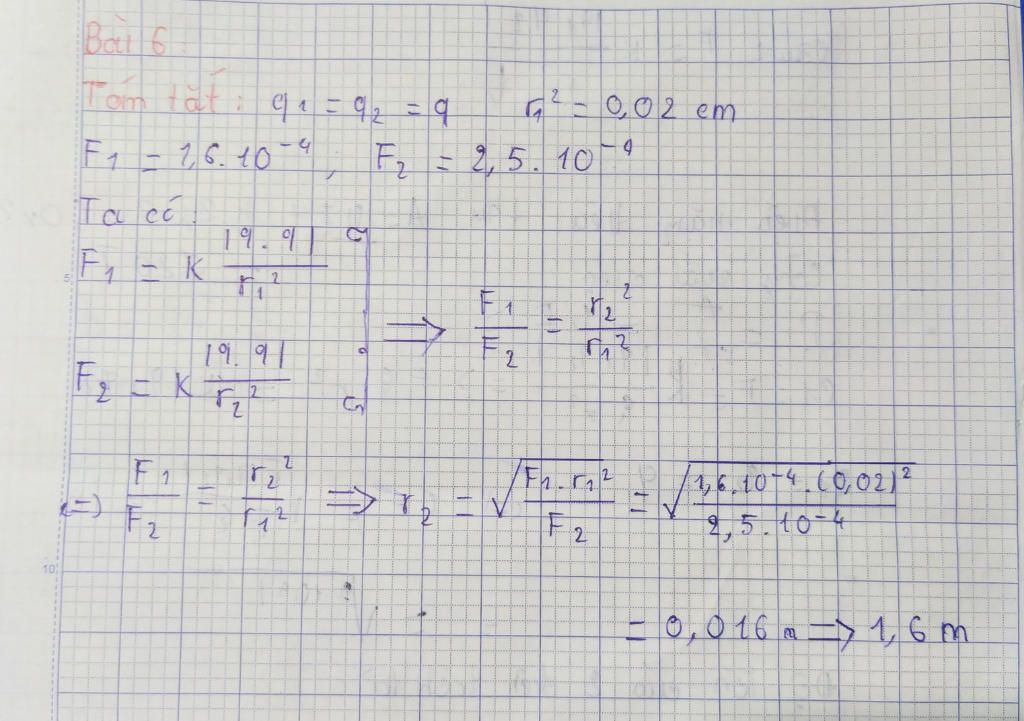 Bài 6:
Tóm tắt: q1 = q2 = q r1² = 0,02 cm
F1 = 1,6.10⁻⁴ , F2 = 2,5.10⁻⁴
Ta có:
F1 = K |q.q| / r1²
F2 = K |q.q| / r2²
=> F1 / F2 = r2² / r1²
(=) F1 / F2 = r2² / r1² => r2 = √(F1.r1² / F2) = √(1,6.10⁻⁴.(0,02)² / 2,5.10⁻⁴)
= 0,016 m => 1,6 m
5
10